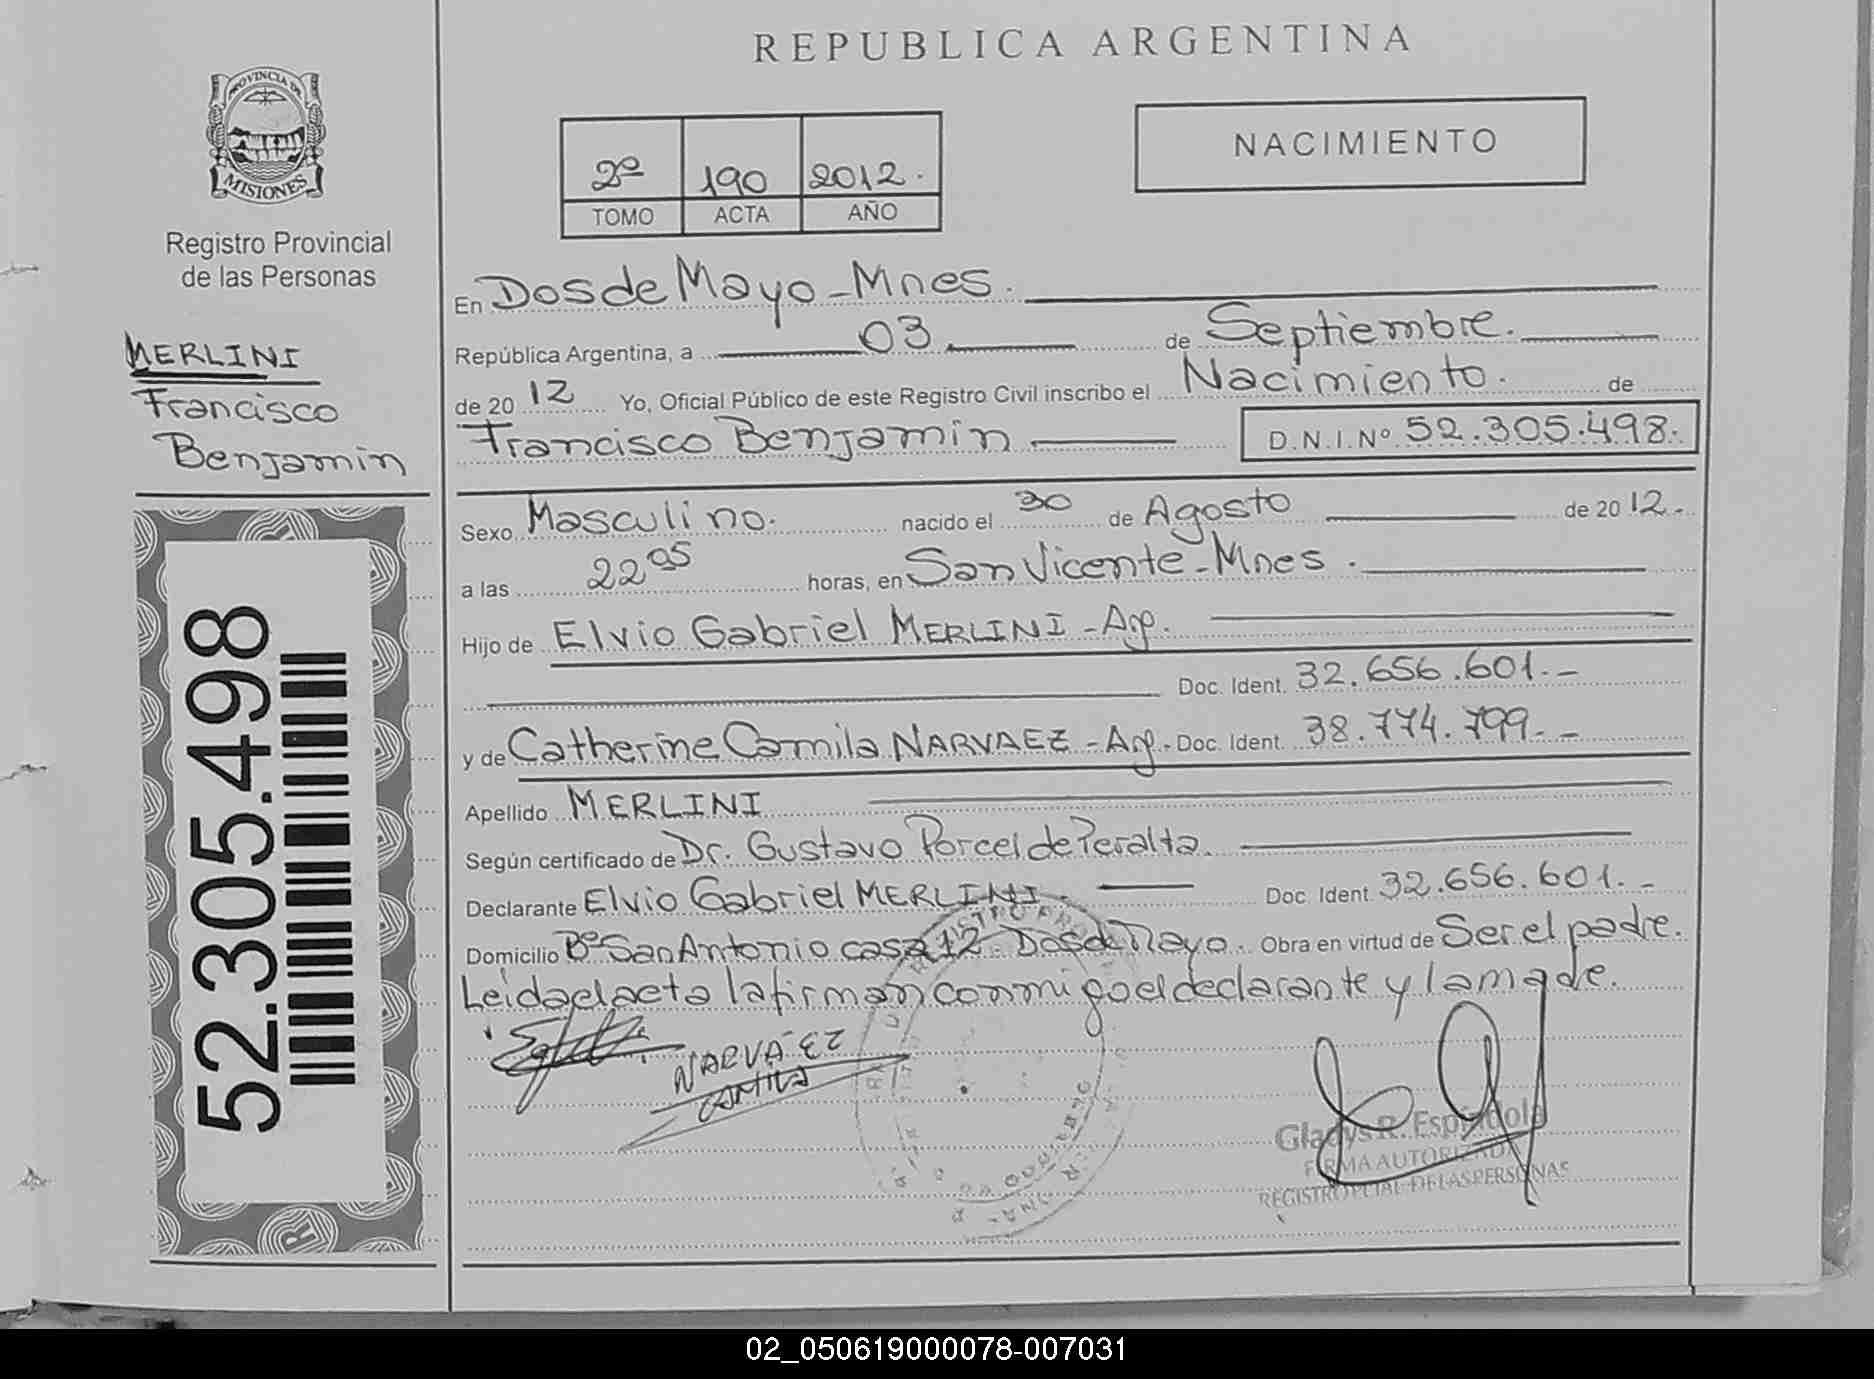 REPUBLICA ARGENTINA
PROVINCIA DE
MISIONES
Registro Provincial
de las Personas
MERLINI
Francisco
Benjamin
52.305.498
2º 190 2012.
TOMO ACTA AÑO
NACIMIENTO
En Dos de Mayo - Mnes.
República Argentina, a 03 de Septiembre.
de 20 12 Yo, Oficial Público de este Registro Civil inscribo el Nacimiento. de
Francisco Benjamin D.N.I.Nº 52.305.498.
Sexo Masculino. nacido el 30 de Agosto de 20 12.-
a las 22 05 horas, en San Vicente - Mnes.
Hijo de Elvio Gabriel MERLINI - Arg.
Doc. Ident. 32.656.601.-
y de Catherine Camila NARVAEZ - Arg.- Doc. Ident. 38.774.799.-
Apellido MERLINI
Según certificado de Dr. Gustavo Porcel de Peralta.
Declarante Elvio Gabriel MERLINI. Doc. Ident. 32.656.601.-
Domicilio Bº San Antonio casa 12 - Dos de Mayo. Obra en virtud de Ser el padre.
Leida el acta la firman conmigo el declarante y la madre.
NARVÁEZ
CAMILA
Gladys R. Espindola
FIRMA AUTORIZADA
REGISTRO PCIAL. DE LAS PERSONAS
02_050619000078-007031